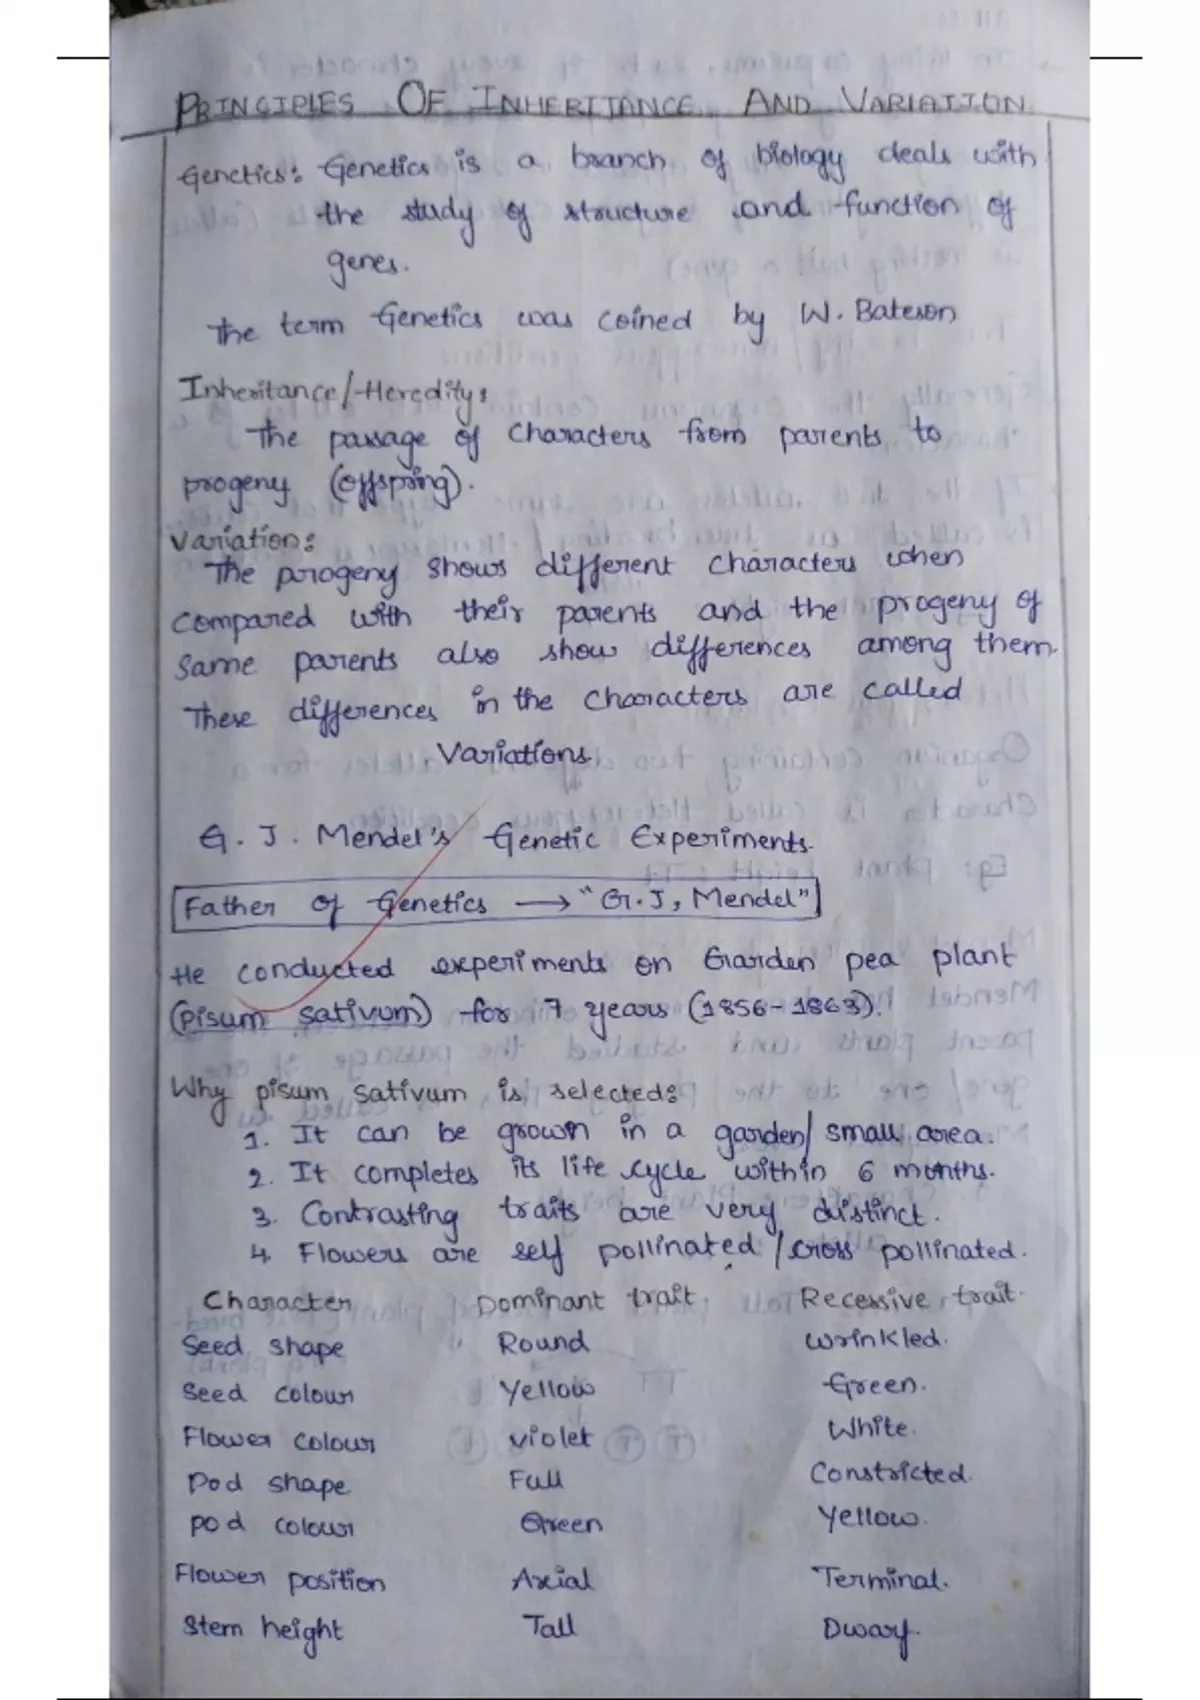 PRINCIPLES OF INHERITANCE AND VARIATION
Genetics: Genetics is a branch of biology deals with
the study of structure and function of
genes.
The term Genetics was coined by W. Bateson
Inheritance/Heredity:
The passage of Characters from parents to
progeny (offspring).
Variation:
The progeny shows different characters when
compared with their parents and the progeny of
same parents also show differences among them.
These differences in the characters are called
Variations.
G. J. Mendel's Genetic Experiments.
Father of Genetics → "G.J, Mendel"
He conducted experiments on Garden pea plant
(pisum sativum) for 7 years (1856-1863).
Why pisum sativum is selected:
1. It can be grown in a garden/small area.
2. It completes its life cycle within 6 months.
3. Contrasting traits are very distinct.
4. Flowers are self pollinated/cross pollinated.
Character Dominant trait Recessive trait.
Seed shape Round Wrinkled.
Seed colour Yellow Green.
Flower colour violet White.
Pod shape Full Constricted.
pod colour Green Yellow.
Flower position Axial Terminal.
Stem height Tall Dwarf.